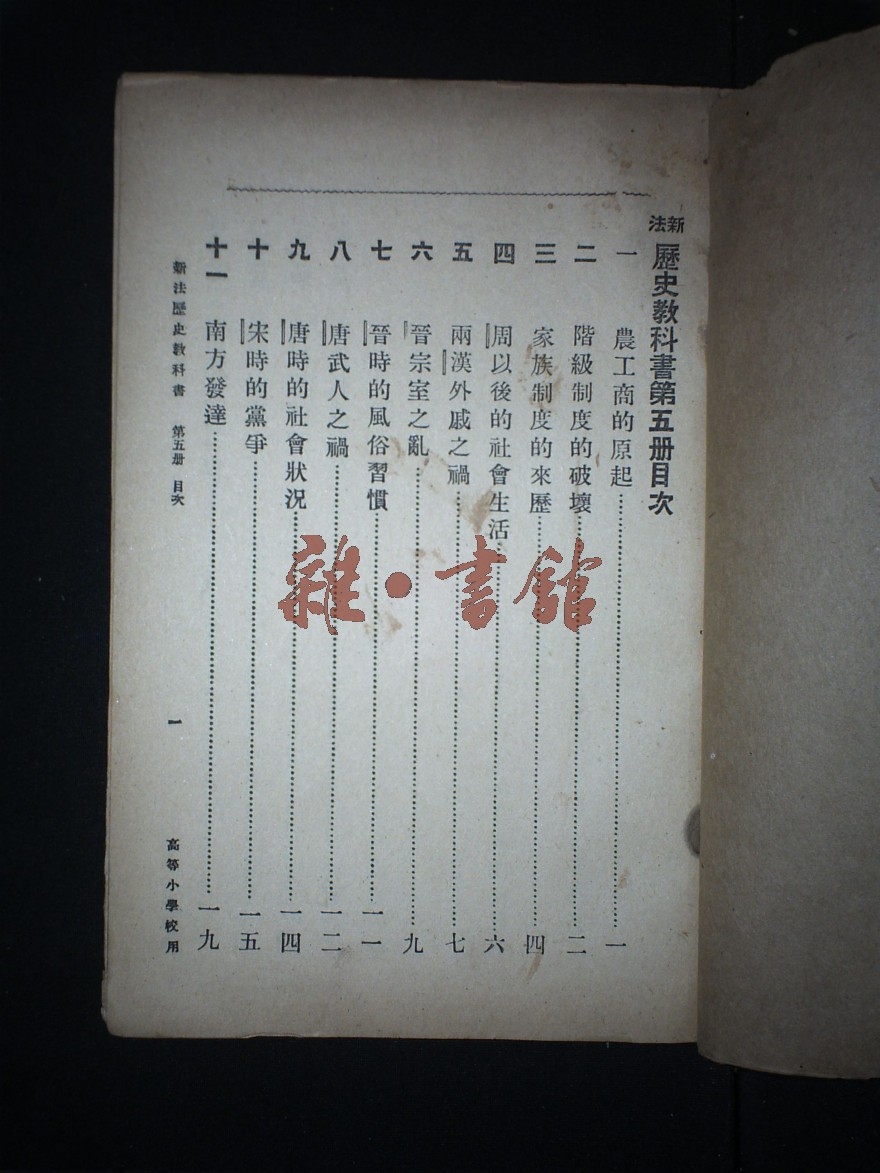 新法歷史教科書第五册目次
一 農工商的原起……一
二 階級制度的破壞……二
三 家族制度的來歷……四
四 周以後的社會生活……六
五 兩漢外戚之禍……七
六 晉宗室之亂……九
七 晉時的風俗習慣……一一
八 唐武人之禍……一二
九 唐時的社會狀況……一四
十 宋時的黨爭……一五
十一 南方發達……一九
新法歷史教科書 第五册 目次 一 高等小學校用
雜·書館